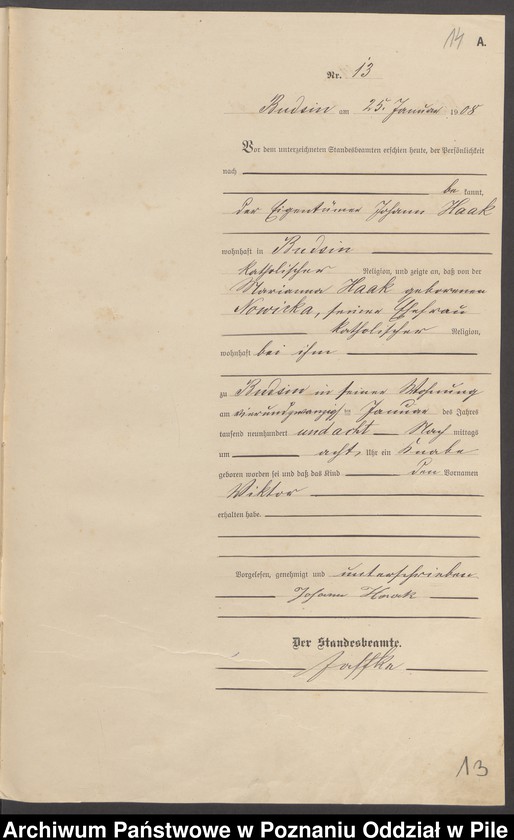 14 A.
Nr. 13
Budsin am 25. Januar 1908
Vor dem unterzeichneten Standesbeamten erschien heute, der Persönlichkeit
nach
be kannt,
der Eigentümer Johann Haak
wohnhaft in Budsin
katholischer Religion, und zeigte an, daß von der
Marianna Haak geborenen
Nowicka, seiner Ehefrau
katholischer Religion,
wohnhaft bei ihm
zu Budsin in seiner Wohnung
am vierundzwanzigsten Januar des Jahres
tausend neunhundert und acht Nach mittags
um acht Uhr ein Knabe
geboren worden sei und daß das Kind den Vornamen
Wiktor
erhalten habe.
Vorgelesen, genehmigt und unterschrieben
Johann Haak
Der Standesbeamte.
Jaffke
13
Archiwum Państwowe w Poznaniu Oddział w Pile